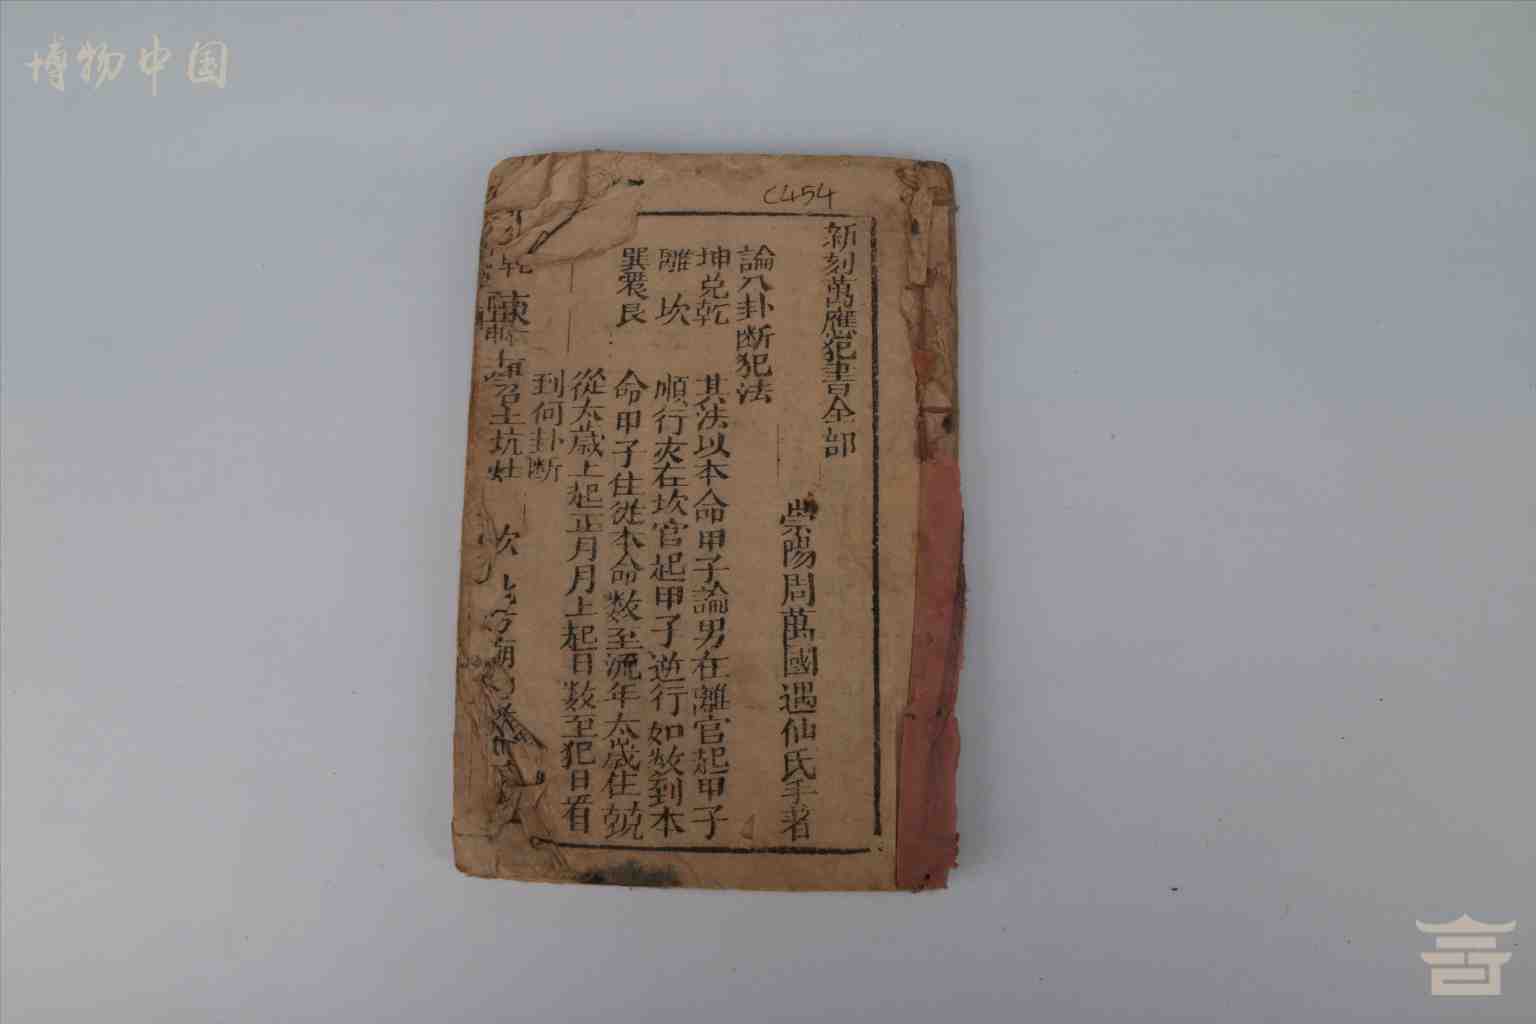 博物中国
C454
新刻萬應犯書全部
崇陽周萬國遇仙氏手著
論八卦断犯法
坤兌乾 其法以本命甲子論男在離官起甲子
離 坎 順行女在坎官起甲子逆行如数到本
巽震艮 命甲子住從本命数至流年太歲住就
從太歲上起正月月上起日数至犯日看
到何卦断
土坑灶